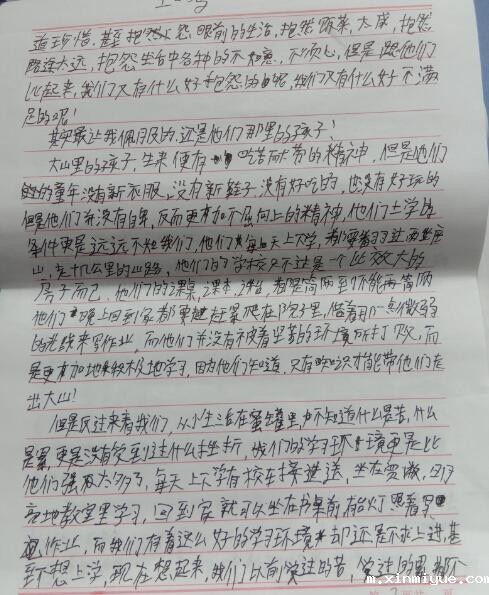 道珍惜,甚至抱怨父母,眼前的生活,抱怨饭菜,太咸,抱怨
路途太远,抱怨生活中各种的不如意,不顺心,但是跟他们
比起来,我们又有什么好抱怨的呢,我们又有什么好不满
足的呢!
其实最让我佩服的还是他们那里的孩子!
大山里的孩子,生来便有吃苦耐劳的精神,但是他们
的童年没有新衣服,没有新鞋子,没有好吃的,也没有好玩的
但是他们并没有自卑,反而更有加不屈向上的精神,他们上学的
条件更是远远不如我们,他们每天上下学,都要翻过两座
山,走十几公里的山路,他们的学校只不过是一个比较大的
房子而已,他们的课桌,课本,都是简陋到不能再简陋
他们晚上回到家都要趴在院子里,借着月一点微弱
的光线来写作业,而他们并没有被着坚苦的环境所打败,而
是更有加地积极地学习,因为他们知道,只有知识才能带他们走
出大山!
但是反过来看我们,从小生活在蜜罐里,不知道什么是苦,什么
是累,更是没有受到过什么挫折,我们的学习环境更是比
他们强很太多了,每天上下学有校车接送,坐在宽敞,明
亮地教室里学习,回到家就可以坐在书桌前有台灯照着写
作业,而我们有着这么好的学习环境却还是不求上进,甚
至不想上学,现在想起来,我们以前受过的苦,受过的累都不
m.xinmiyue.com